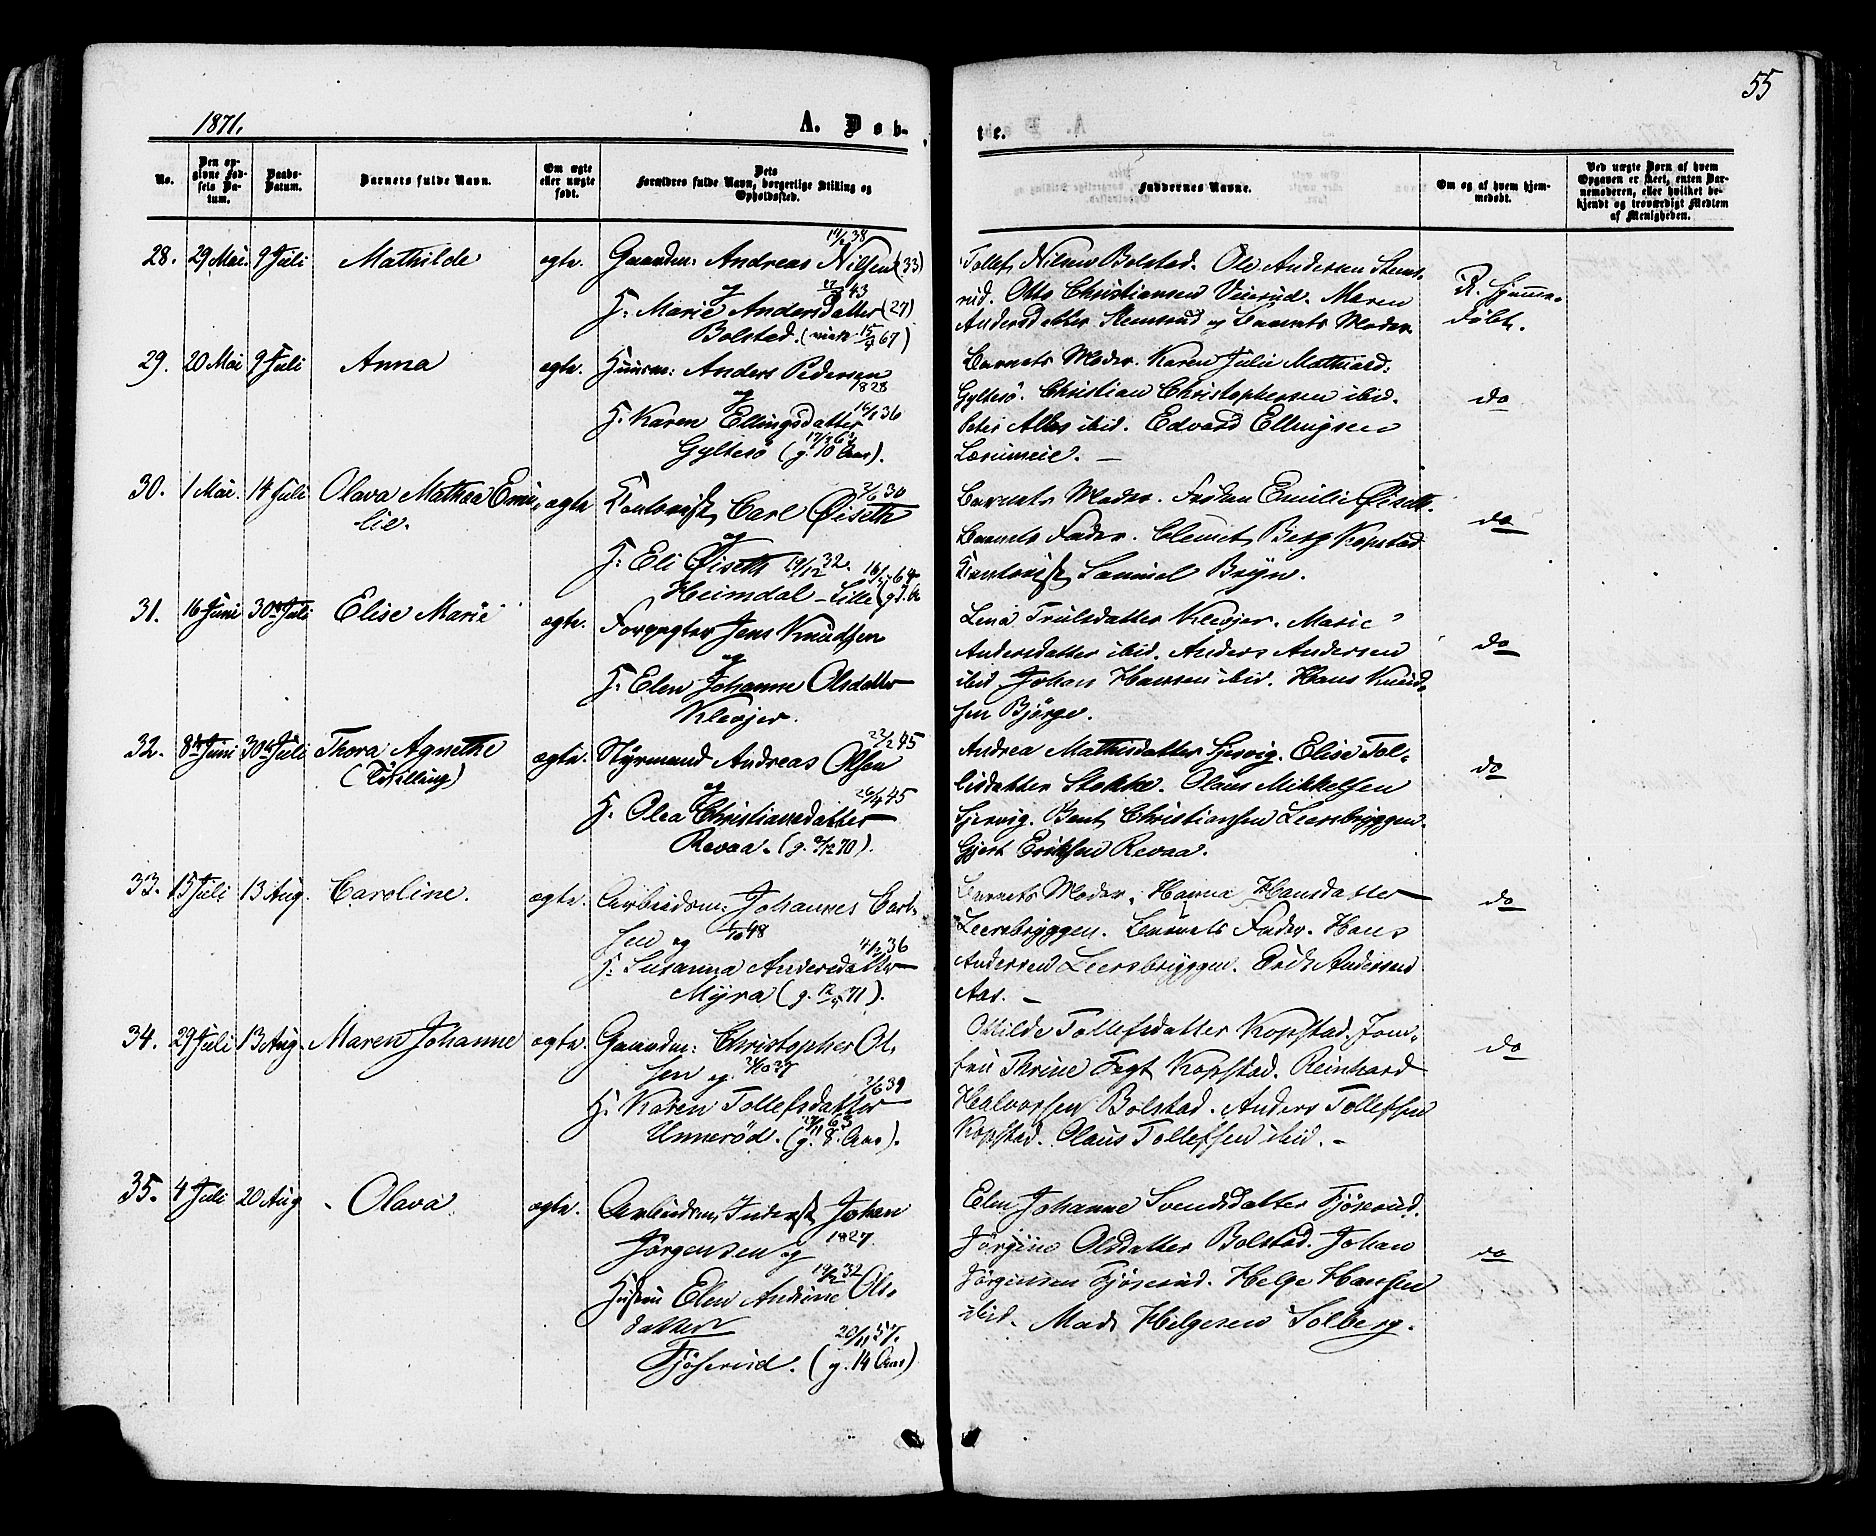 55
1871.
A. Døb-
te.
No.
Den opgivne Fødsels Datum.
Daabs-Datum.
Barnets fulde Navn.
Om ægte eller uægte født.
Dets Forældres fulde Navn, borgerlige Stilling og Opholdssted.
Faddernes Navne.
Om og af hvem hjemmedøbt.
Ved uægte Børn af hvem Opgaven er skeet, enten Barnemoderen, eller hvilket bekjendt og troværdigt Medlem af Menigheden.
28. 29 Mai 9 Juli Mathilde ægte. Gaardm: Andreas Nilsen (33)
og
H. Marie Andersdatter (27)
Bolstad.
Tollef Nilsen Bolstad. Ole Andersen Stems-
rud. Otto Christiansen Vierud. Maren
Andersdatter Stemsrud og Barnets Moder.
R. Hjemme-
døbt.
29. 20 Mai 9 Juli Anna ægte. Huusm: Anders Pedersen
1828
og
H. Karen Ellingsdatter
Gyltesö (g. 10 Aar).
Barnets Moder. Karen Julie Mathiasd:
Gyltesö. Christian Christophersen ibid.
ibid. Edvard Ellingsen
do
30. 1 Mai. 14 Juli Olava Mathea Emi-
lie. ægte Kontorist Carl Øiseth
og
H: Eli Øiseth 19/12 32.
Heimdal - Lille
Barnets Moder. Frøken Emilie Øiseth.
Barnets Fader. Clemet Berg Kopstad
Kontorist Samuel Bryn.
do
31. 16 Juni 30te Juli Elise Marie ægte. Forpagter Jens Knudsen
og
H. Elen Johanne Olsdatter
Klevjer.
Lina Trulsdatter Klevjer. Marie
Andersdatter ibid. Anders Andersen
ibid Johan Hansen ibid. Hans Knud-
sen Bjørge.
do
32. 8de Juni 30te Juli Thora Agnethe
(Tvilling) ægte. Styrmand Andreas Olsen
og
H. Olea Christiansdatter
Revaa.
Andrea Mathisdatter Sjervig. Elise Tol-
lisdatter Stokke. Olaus Mikkelsen
Sjervig. Bent Christiansen Leersbryggen.
Gjert Eriksen Revaa.
do
33. 15 Juli 13 Aug. Caroline. ægte. Arbeidsm: Johannes Carl-
sen og
H. Susanna Andersdatter
Myra
Barnets Moder. Hanna Hansdatter
Leersbryggen. Barnets Fader. Hans
Andersen Leersbryggen. Andersen
Aas. -
do
34. 29 Juli 13 Aug. Maren Johanne ægte. Gaardm: Christopher Ol-
sen og
H. Karen Tollefsdatter
Unnerød. (g. 8 Aar).
Othilde Tollefsdatter Kopstad. Jom-
fru Thrine Fegt Kopstad. Reinhard
Halvorsen Bolstad. Anders Tollefsen
Kopstad. Olaus Tollefsen ibid. -
do
35. 4 Juli 20 Aug Olava ægte. Arbeidsm, Inderst Johan
Jörgensen og 1827
Hustru Elen Andrine Ols-
datter
Fjøserud. (g. 14 Aar)
Elen Johanne Svendsdatter Fjöserud.
Jörgine Olsdatter Bolstad. Johan
Jörgensen Fjöserud. Helge Hansen
ibid. Mads Helgesen Solberg.
do